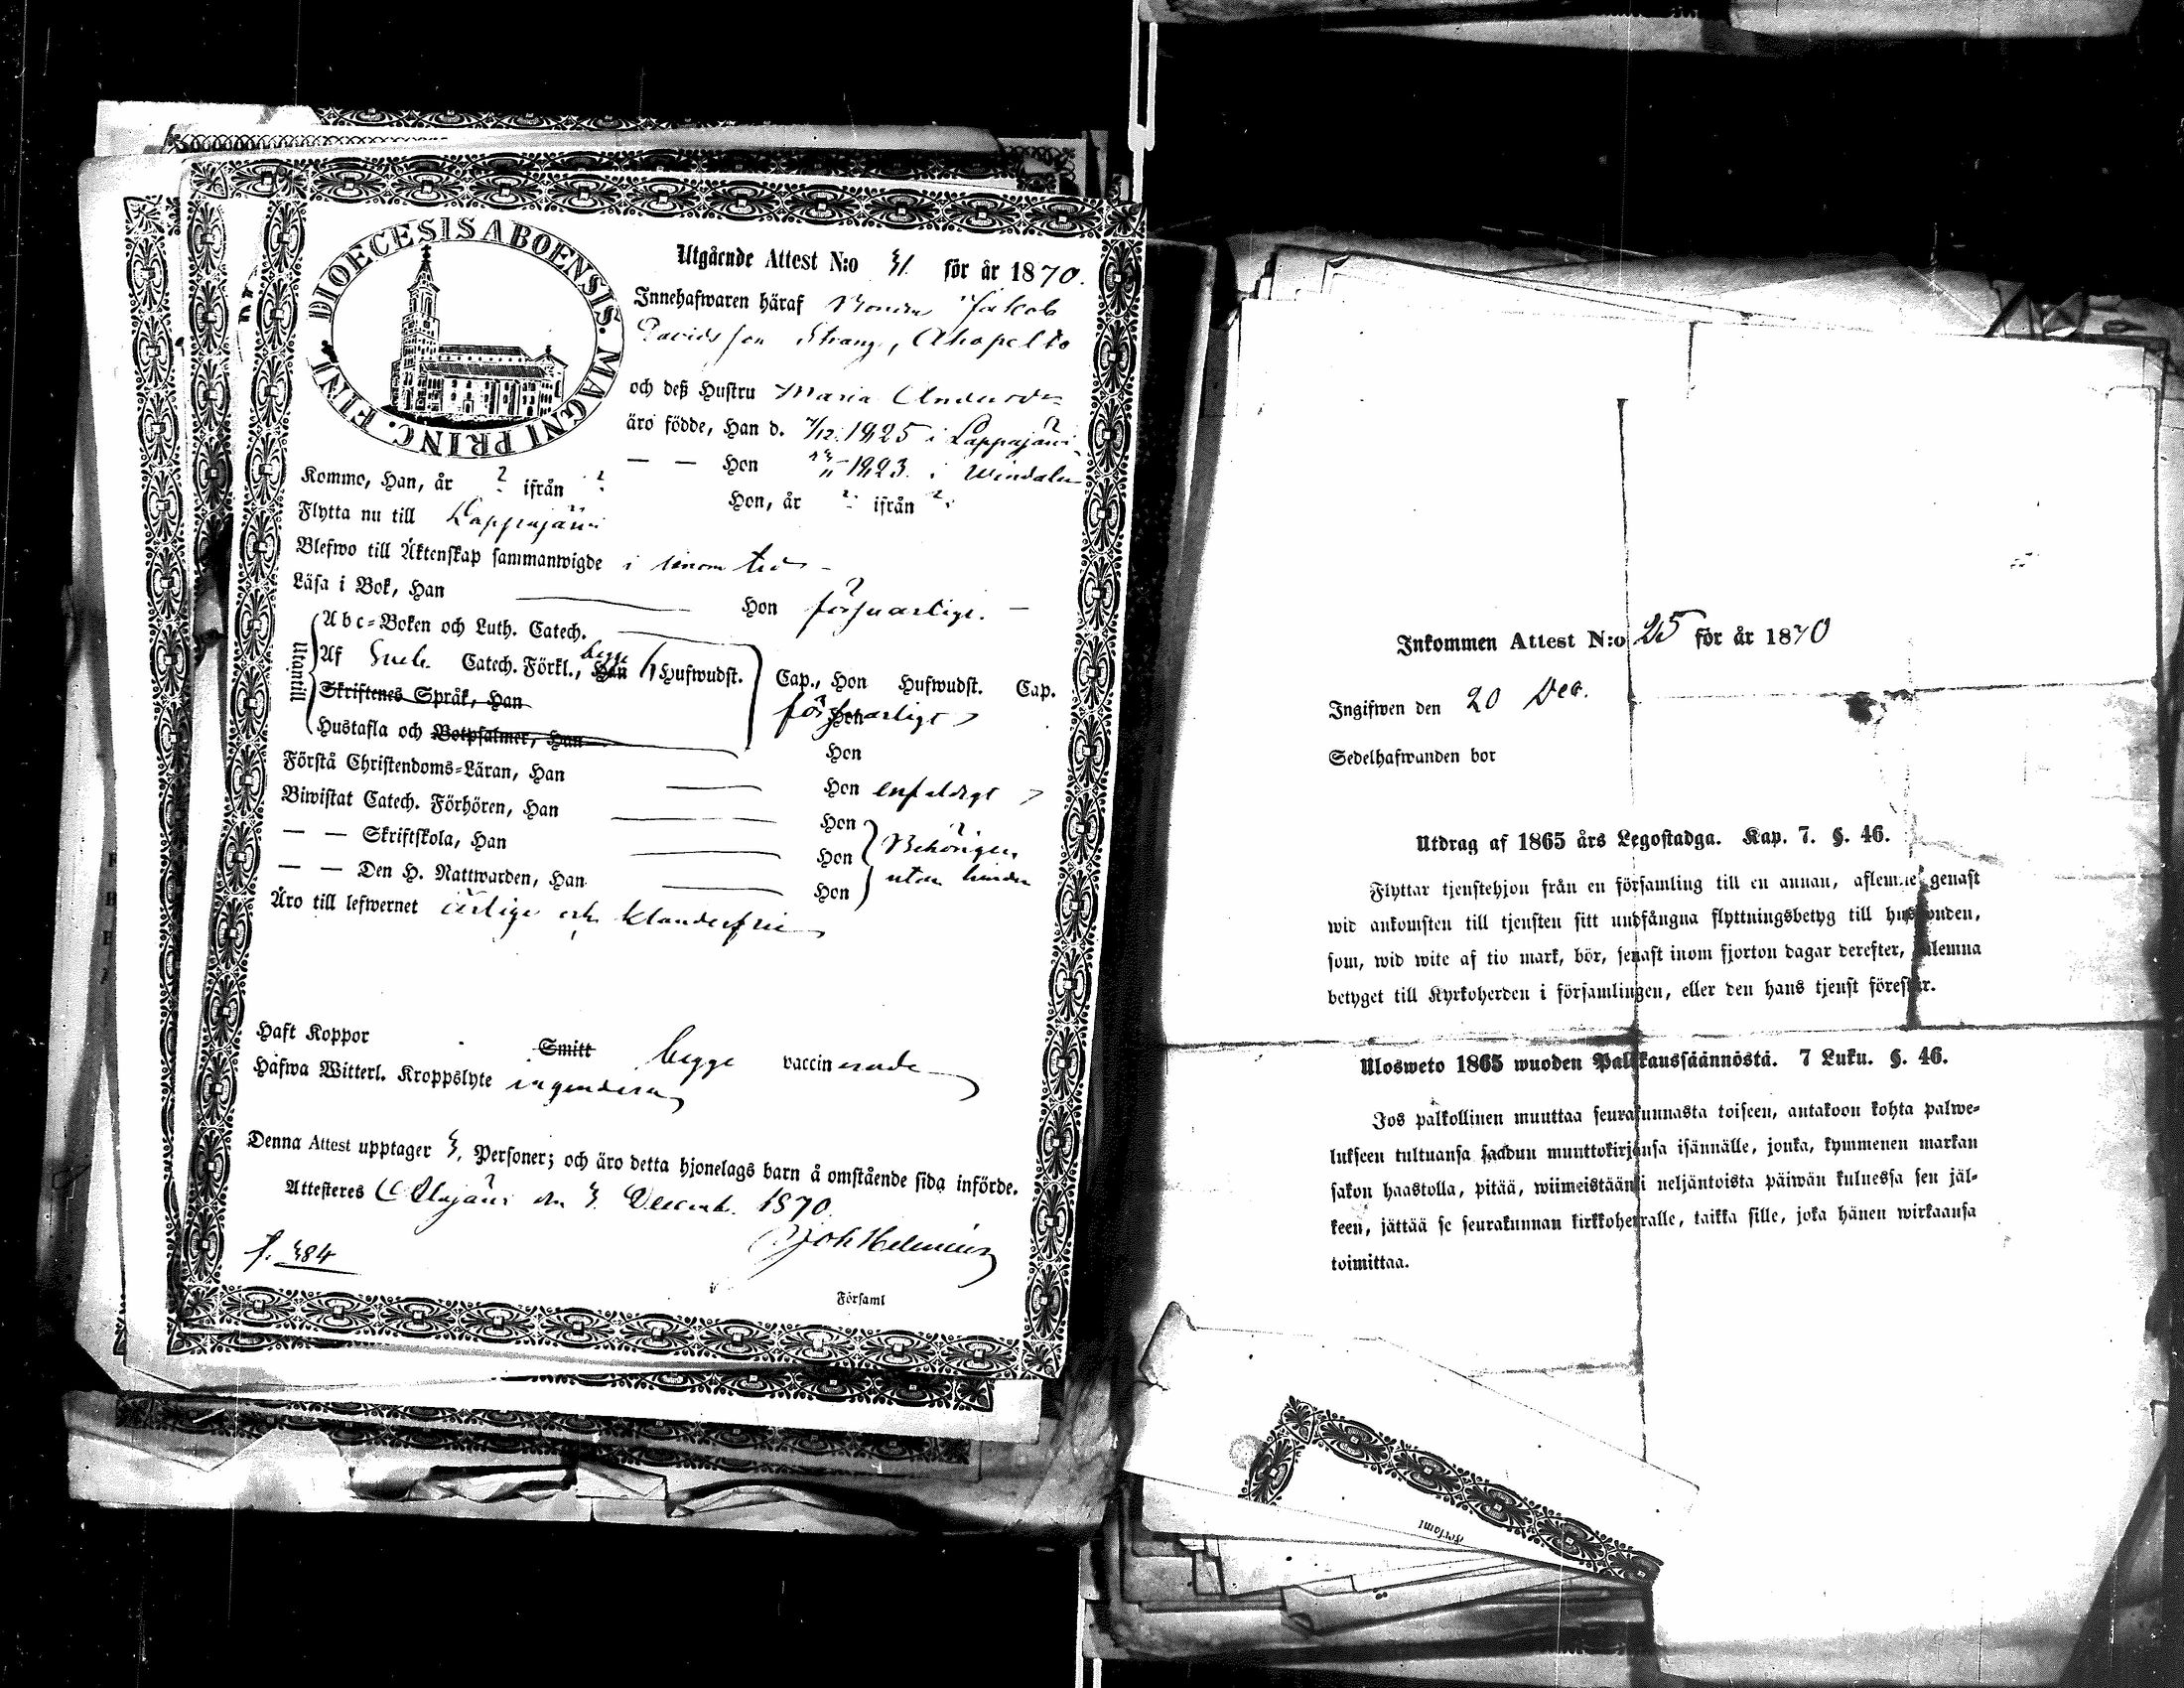 DIOECESIS ABOENSIS. MAGNI PRINC. FINL.
Utgående Attest N:o 31. för år 1870.
Innehafwaren häraf Bonden Jakob
Davidsson Strang, Ahopelto
och deß Hustru Maria Andersdr
äro födde, Han d. 7/12 1825 i Lappajärvi
— — Hon 1823. i Windala
Kommo, Han, år ? ifrån ?
Hon, år ? ifrån ?
Flytta nu till Lappajärvi
Blefwo till Äktenskap sammanwigde i sinom tid
Läsa i Bok, Han — Hon försvarligt. —
Utantill
Abc-Boken och Luth. Catech.
Af Sveb. Catech. Förkl., Han begge Hufwudst. Cap., Hon Hufwudst. Cap.
Skriftenes Språk, Han Hon försvarligt
Hustafla och Botpsalmer, Han Hon
Förstå Christendoms-Läran, Han — Hon enfaldigt
Biwistat Catech. Förhören, Han — Hon
— — Skriftskola, Han — Hon Behörigen
— — Den H. Nattwarden, Han — Hon utan hinder
Äro till lefwernet ärlige och klanderfrie
Haft Koppor Smitt begge vaccinerade
Håfwa Witterl. Kroppslyte ingendera
Denna Attest upptager 3. Personer; och äro detta hjonelags barn å omstående sida införde.
Attesteres Alajärvi den 3. Decemb. 1870.
Joh Helenius
p. 384
Församl
Inkommen Attest N:o 25 för år 1870
Ingifwen den 20 Dec.
Sedelhafwanden bor
Utdrag af 1865 års Legostadga. Kap. 7. §. 46.
Flyttar tjenstehjon från en församling till en annan, aflemne genast
wid ankomsten till tjensten sitt undfångna flyttningsbetyg till husbonden,
som, wid wite af tio mark, bör, senast inom fjorton dagar derefter, aflemna
betyget till Kyrkoherden i församlingen, eller den hans tjenst förestår.
Ulosweto 1865 wuoden Palkkaussäännöstä. 7 Luku. §. 46.
Jos palkollinen muuttaa seurakunnasta toiseen, antakoon kohta palwe-
lukseen tultuansa saadun muuttokirjansa isännälle, jonka, kymmenen markan
sakon haastolla, pitää, wiimeistäänki neljäntoista päiwän kuluessa sen jäl-
keen, jättää se seurakunnan kirkkoherralle, taikka sille, joka hänen wirkaansa
toimittaa.
Församl